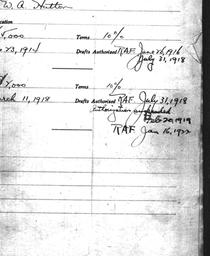 W. A. Hutton
,000 Terms 10%
23, 1914 Drafts Authorized RAF June 26, 1916
July 31, 1918
,000 Terms 10%
March 11, 1918 Drafts Authorized RAF July 31, 1918
Authorization suspended
Feb 20, 1919
RAF Jan 16, 1922